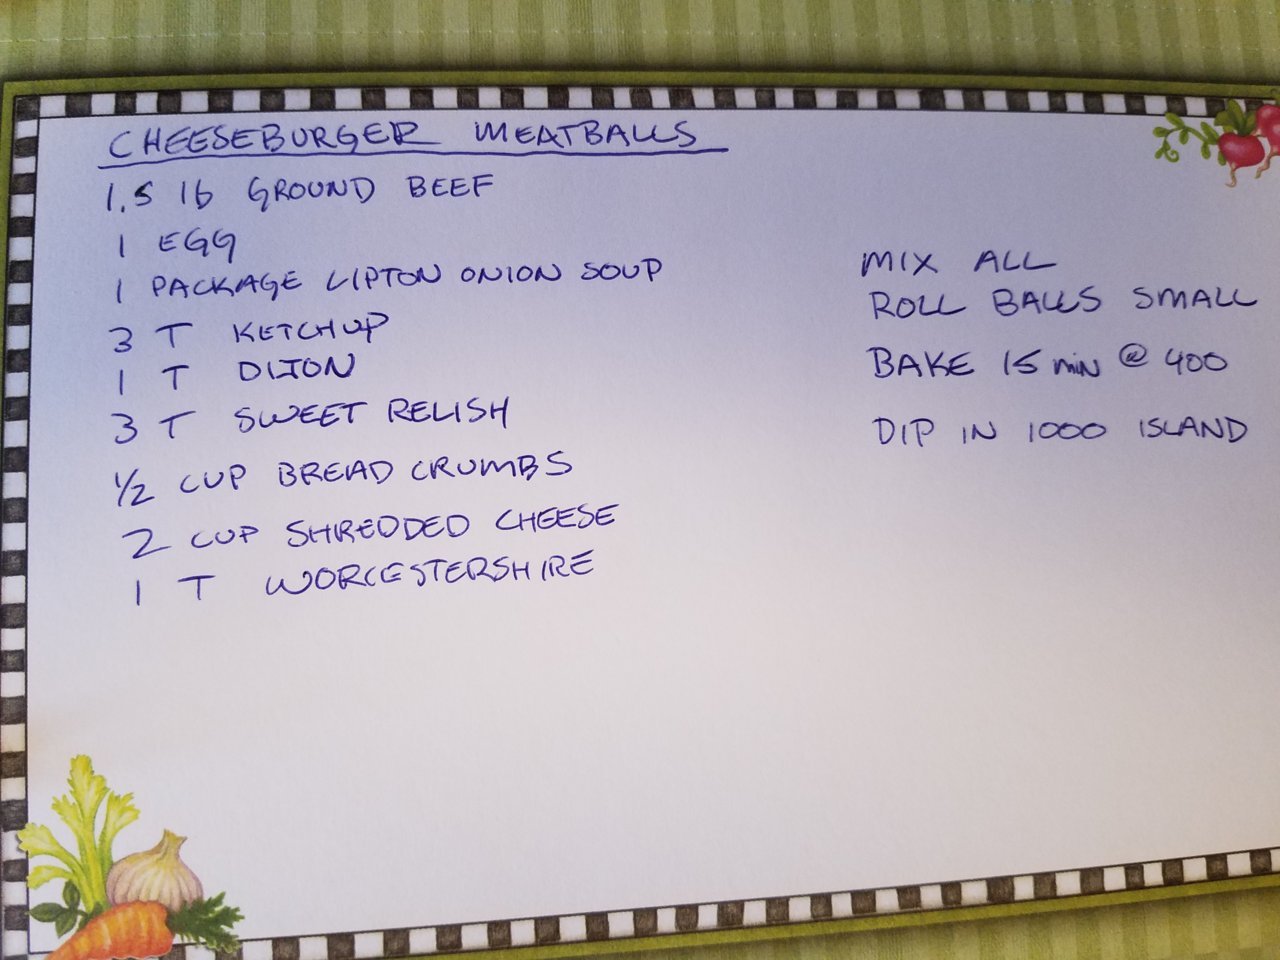 CHEESEBURGER MEATBALLS
1.5 lb GROUND BEEF
1 EGG
1 PACKAGE LIPTON ONION SOUP
3 T KETCHUP
1 T DIJON
3 T SWEET RELISH
1/2 CUP BREAD CRUMBS
2 CUP SHREDDED CHEESE
1 T WORCESTERSHIRE
MIX ALL
ROLL BALLS SMALL
BAKE 15 min @ 400
DIP IN 1000 ISLAND